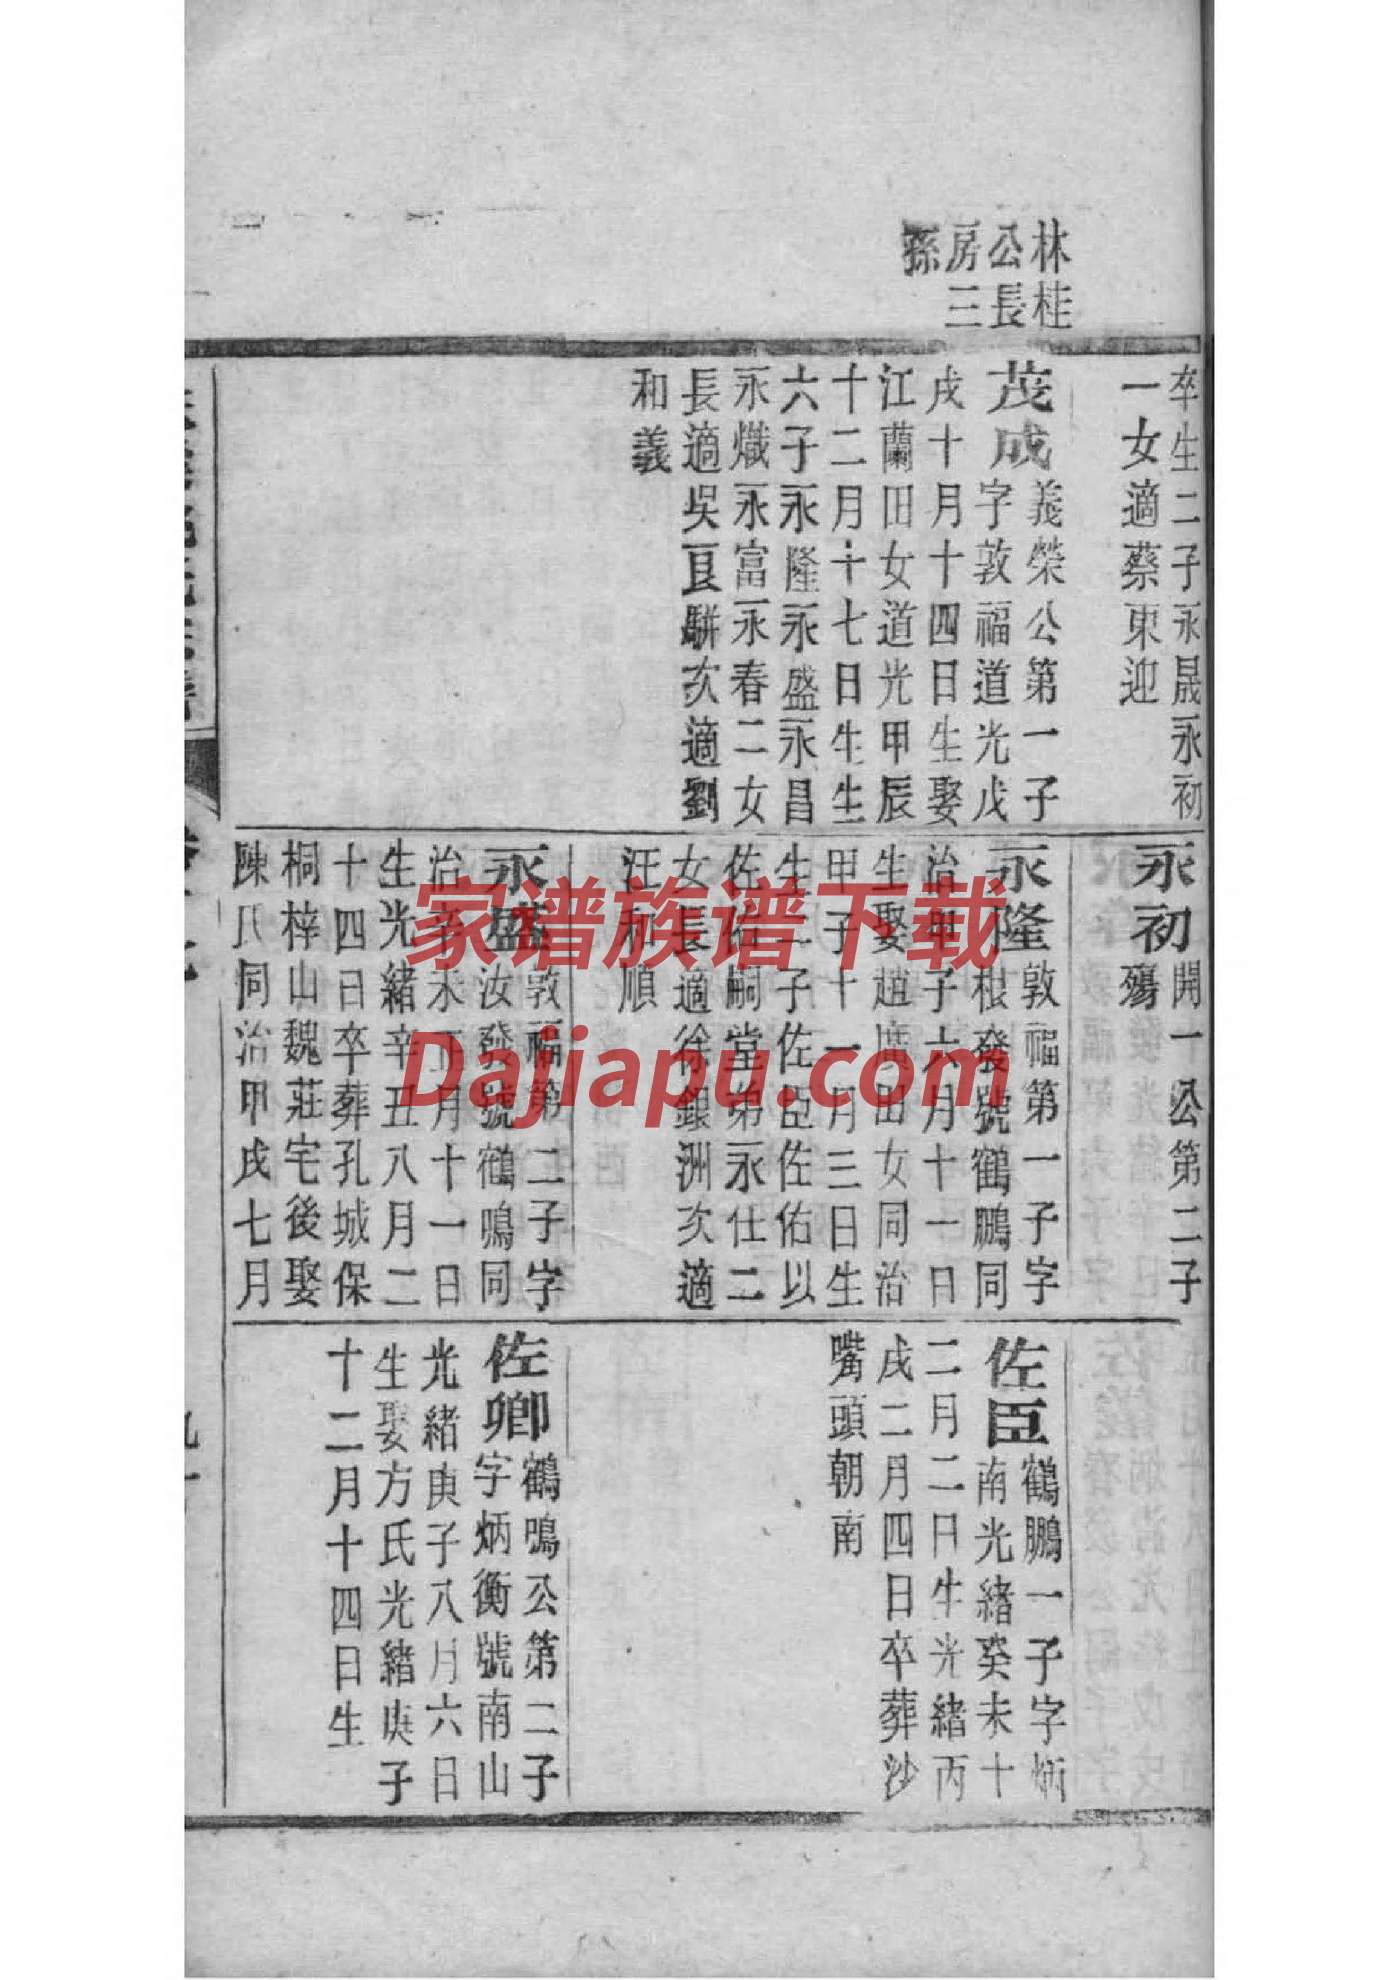 林桂
公長
房三
孫
卒生二子永晟永初
一女適蔡東迎
茂成義榮公第一子
字敦福道光戊
戌十月十四日生娶
江蘭田女道光甲辰
十二月十七日生生
六子永隆永盛永昌
永熾永富永春二女
長適吳良駢次適劉
和義
永初開一公第二子
殤
永隆敦福第一子字
根發號鶴鵬同
治甲子六月十一日
生娶趙廣田女同治
甲子十一月三日生
生二子佐臣佐佑以
佐佑嗣堂弟永仕二
女長適徐銀洲次適
汪和順
永盛敦福第二子字
汝發號鶴鳴同
治辛未正月十一日
生光緒辛丑八月二
十四日卒葬孔城保
桐梓山魏莊宅後娶
陳氏同治甲戌七月
佐臣鶴鵬一子字炳
南光緒癸未十
二月二日生光緒丙
戌二月四日卒葬沙
嘴頭朝南
佐卿鶴鳴公第二子
字炳衡號南山
光緒庚子八月六日
生娶方氏光緒庚子
十二月十四日生
家谱族谱下载
Dajiapu.com